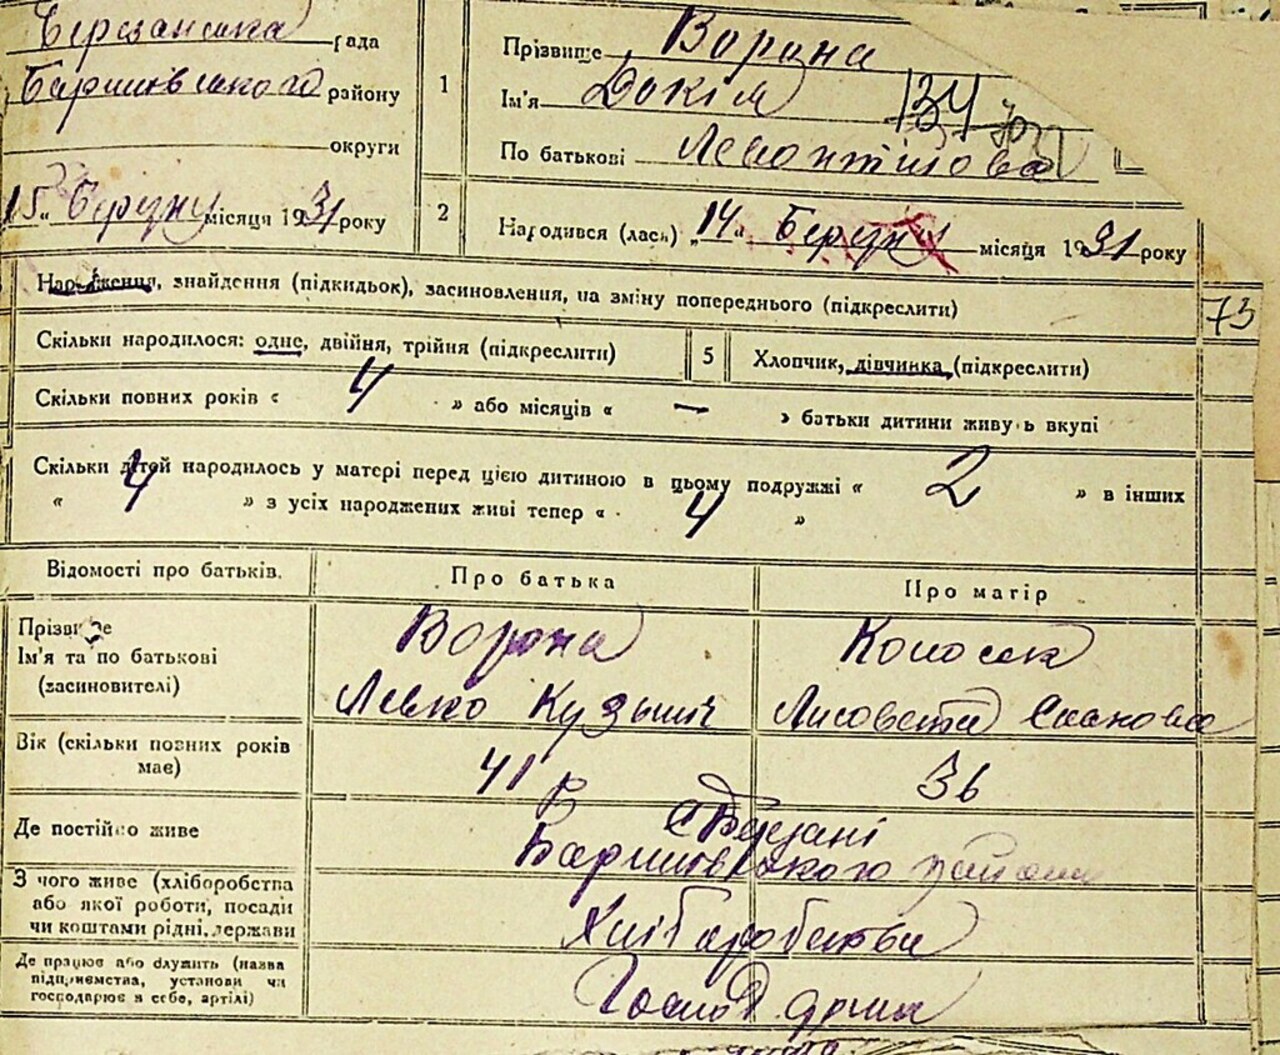 Березанська рада
Баришівського району
округи
15 „ Березню місяця 1931 року
1
Прізвище Ворона
Ім'я Докія
134
По батькові Левонтіїова
2
Народився (лась) „ 14 " Березня місяця 1931 року
Народження, знайдення (підкидьок), засиновлення, на зміну попереднього (підкреслити)
73
Скільки народилося: одне, двійня, трійня (підкреслити)
5
Хлопчик, дівчинка (підкреслити)
Скільки повних років « 4 » або місяців « — » батьки дитини живуть вкупі
Скільки дітей народилось у матері перед цією дитиною в цьому подружжі « 2 » в інших
« 4 » з усіх народжених живі тепер « 4 »
Відомості про батьків.
Про батька
Про матір
Прізвище
Ім'я та по батькові
(засиновителі)
Ворона
Левко Кузьмич
Лисовета
Вік (скільки повних років
має)
41 р
36
Де постійно живе
с Березані
Баришівського району
З чого живе (хліборобства
або якої роботи, посади
чи коштами рідні, держави
Хліборобства
Де працює або служить (назва
підприємства, установи чи
господарює в себе, артілі)